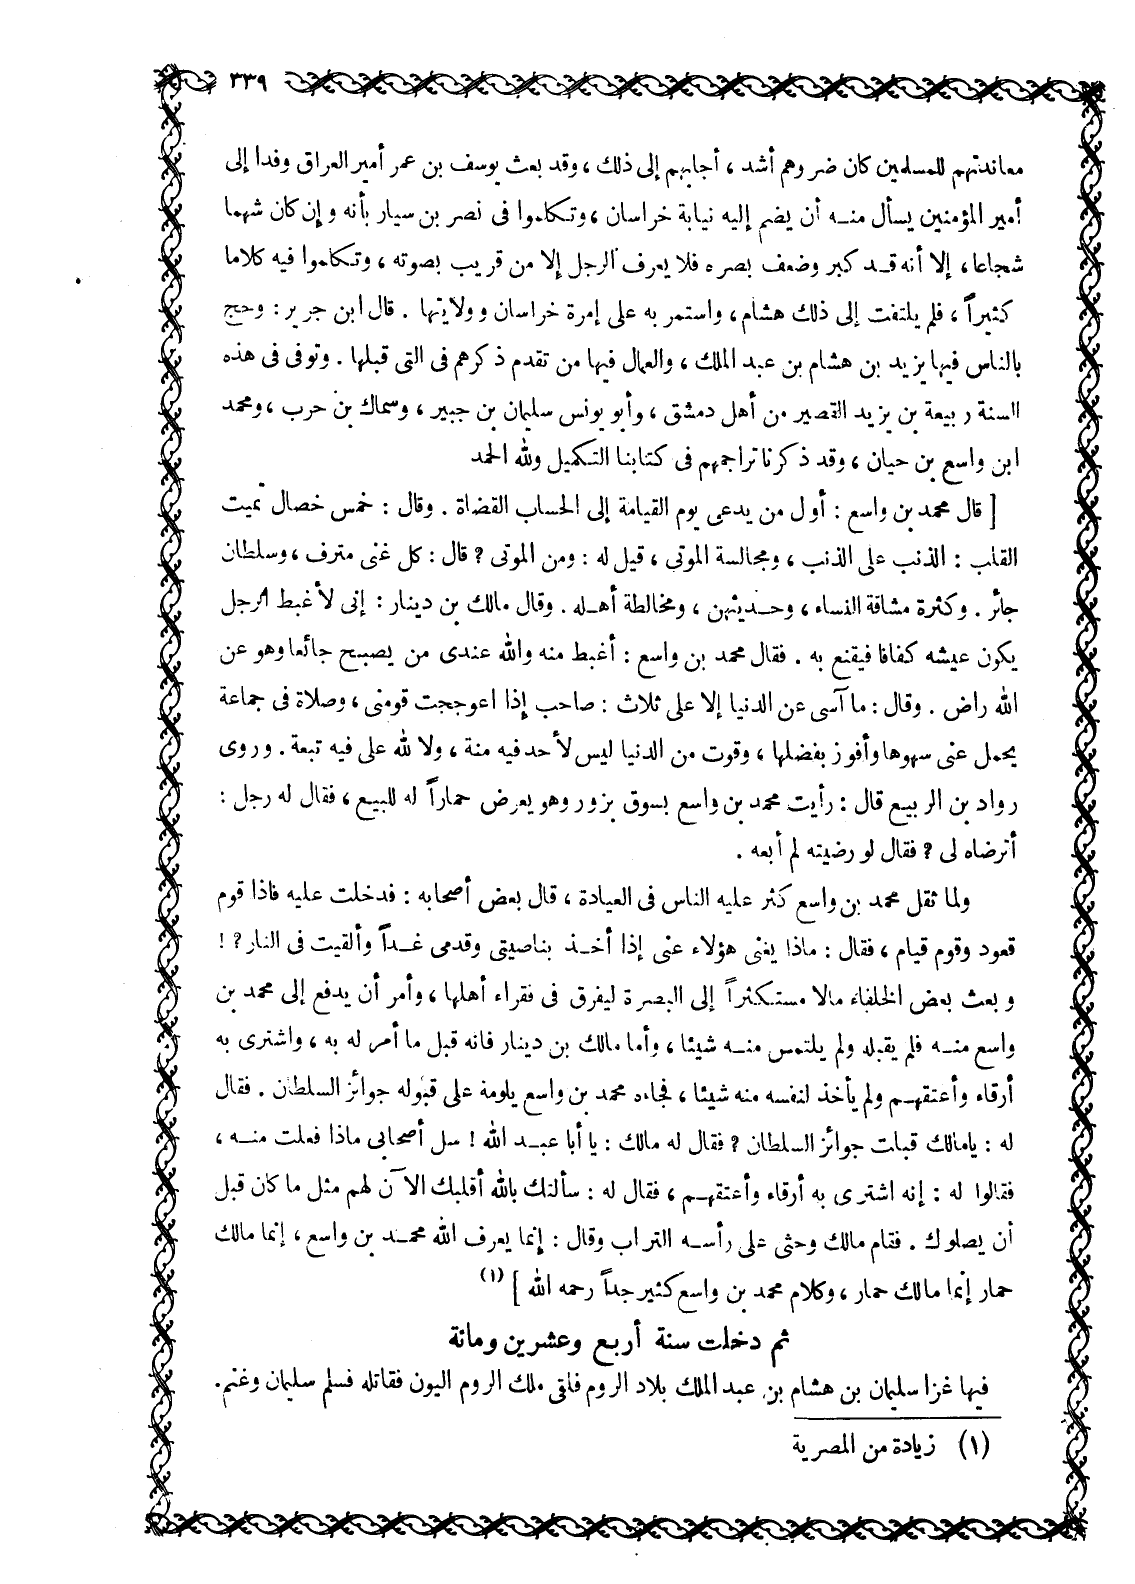 ٣٣٩
معاندتهم للمسلمين كان ضررهم أشد ، أجابهم إلى ذلك ، وقد بعث يوسف بن عمر أمير العراق وفدا إلى
أمير المؤمنين يسأل منه أن يضم إليه نيابة خراسان ، وتكلموا فى نصر بن سيار بأنه وإن كان شهما
شجاعا ، إلا أنه قد كبر وضعف بصره فلا يعرف الرجل إلا من قريب بصوته ، وتكلموا فيه كلاما
كثيراً ، فلم يلتفت إلى ذلك هشام ، واستمر به على إمرة خراسان وولايتها . قال ابن جرير : وحج
بالناس فيها يزيد بن هشام بن عبد الملك ، والعمال فيها من تقدم ذكرهم فى التى قبلها . وتوفى فى هذه
السنة ربيعة بن يزيد القصير من أهل دمشق ، وأبو يونس سليمان بن جبير ، وسماك بن حرب ، ومحمد
ابن واسع بن حيان ، وقد ذكرنا تراجمهم فى كتابنا التكميل ولله الحمد
[ قال محمد بن واسع : أول من يدعى يوم القيامة إلى الحساب القضاة . وقال : خمس خصال تميت
القلب : الذنب على الذنب ، ومجالسة الموتى ، قيل له : ومن الموتى ? قال : كل غنى مترف ، وسلطان
جائر . وكثرة مشاقة النساء ، وحديثهن ، ومخالطة أهله . وقال مالك بن دينار : إنى لأغبط الرجل
يكون عيشه كفافا فيقنع به . فقال محمد بن واسع : أغبط منه والله عندى من يصبح جائعا وهو عن
الله راض . وقال : ما آسى عن الدنيا إلا على ثلاث : صاحب إذا اعوججت قومنى ، وصلاة فى جماعة
يحمل عنى سهوها وأفوز بفضلها ، وقوت من الدنيا ليس لأحد فيه منة ، ولا لله على فيه تبعة . وروى
رواد بن الربيع قال : رأيت محمد بن واسع بسوق بزور وهو يعرض حماراً له للبيع ، فقال له رجل :
أترضاه لى ? فقال لو رضيته لم أبعه .
ولما ثقل محمد بن واسع كثر عليه الناس فى العيادة ، قال بعض أصحابه : فدخلت عليه فاذا قوم
قعود وقوم قيام ، فقال : ماذا يغنى هؤلاء عنى إذا أخذ بناصيتى وقدمى غداً وألقيت فى النار ? !
وبعث بعض الخلفاء مالا مستكثراً إلى البصرة ليفرق فى فقراء أهلها ، وأمر أن يدفع إلى محمد بن
واسع منه فلم يقبله ولم يلتمس منه شيئا ، وأما مالك بن دينار فانه قبل ما أمر له به ، واشترى به
أرقاء وأعتقهم ولم يأخذ لنفسه منه شيئا ، فجاءه محمد بن واسع يلومة على قبوله جوائز السلطان . فقال
له : يامالك قبلت جوائز السلطان ? فقال له مالك : يا أبا عبد الله ! سل أصحابى ماذا فعلت منه ،
فقالوا له : إنه اشترى به أرقاء وأعتقهم ، فقال له : سألتك بالله أقلبك الآن لهم مثل ما كان قبل
أن يصلوك . فقام مالك وحثى على رأسه التراب وقال : إنما يعرف الله محمد بن واسع ، إنما مالك
حمار إنما مالك حمار ، وكلام محمد بن واسع كثير جداً رحمه الله ] (١)
ثم دخلت سنة أربع وعشرين ومائة
فيها غزا سليمان بن هشام بن عبد الملك بلاد الروم فلقى ملك الروم اليون فقاتله فسلم سليمان وغنم .
(١) زيادة من المصرية